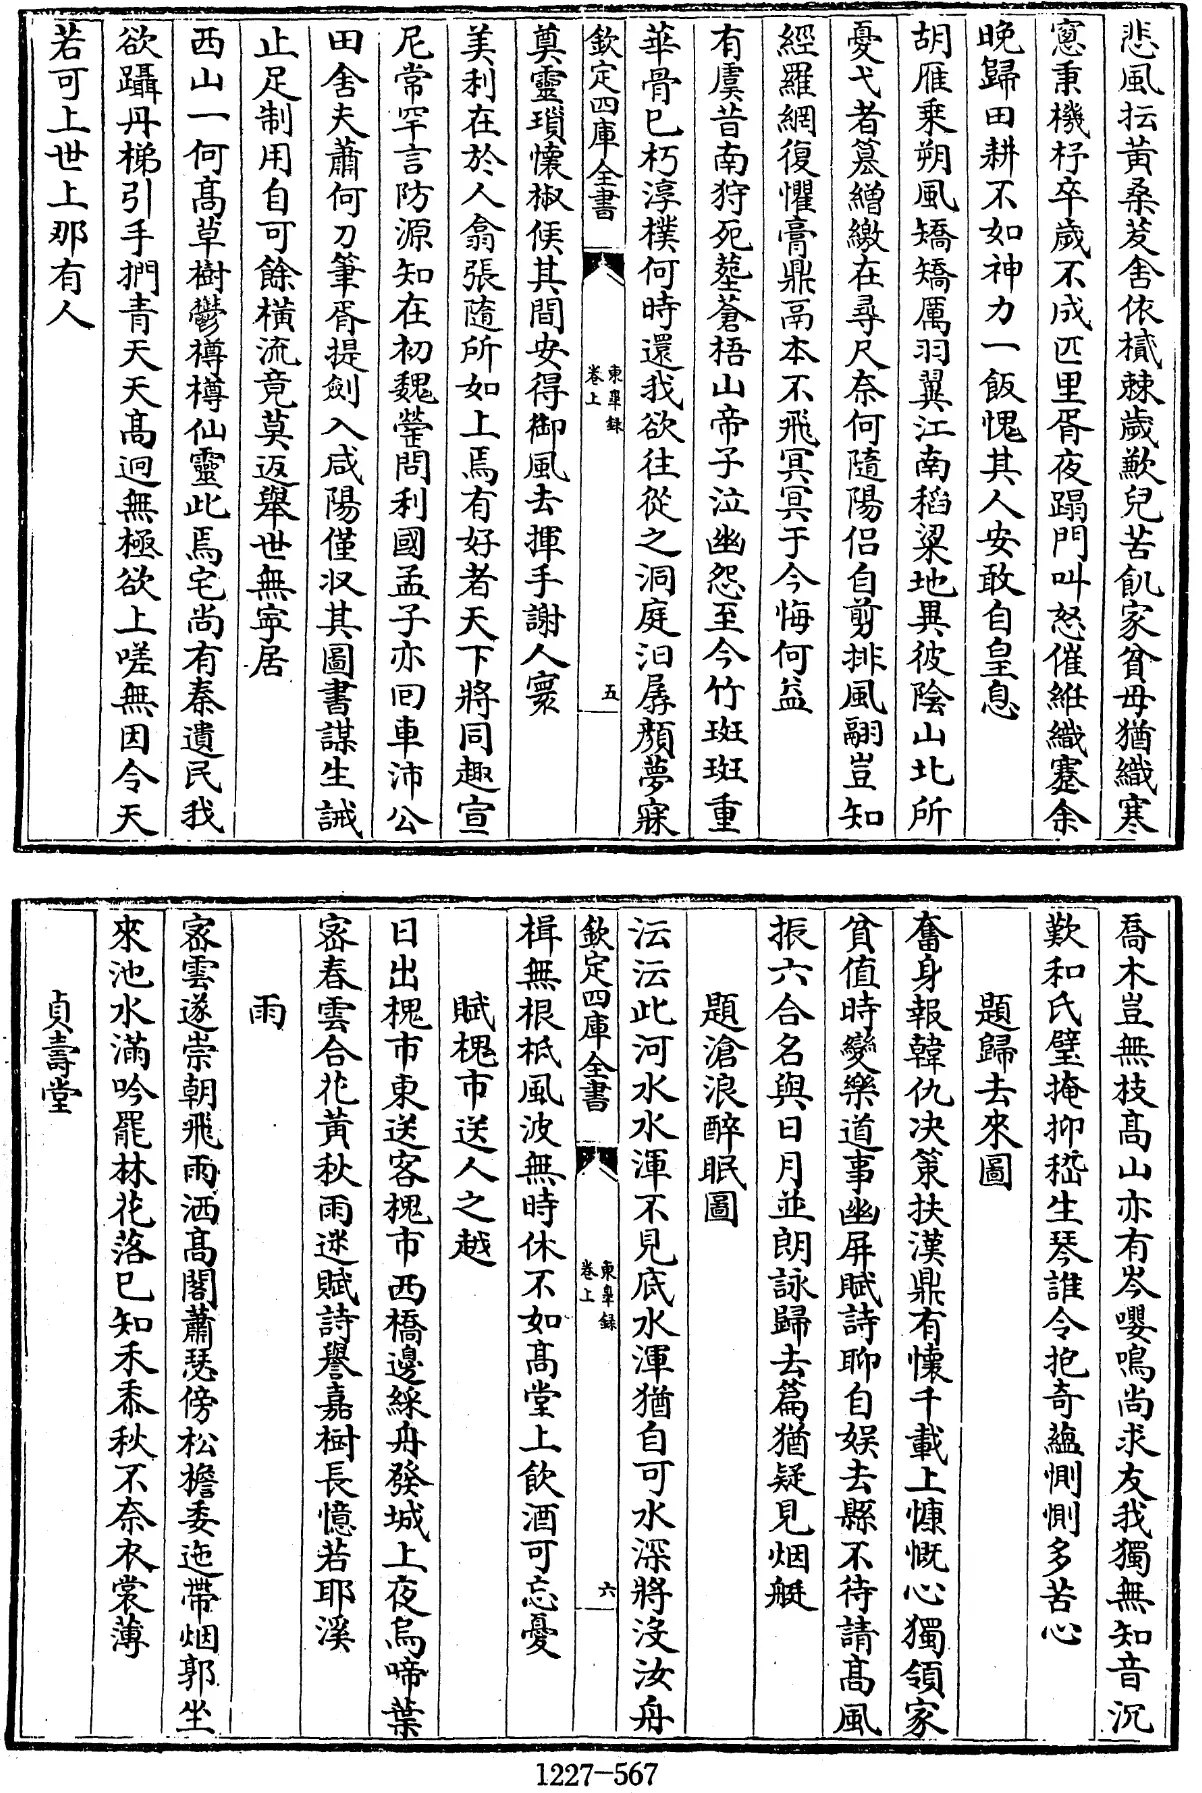 悲風抎黃桑茇舍依樲棘歲歉兒苦飢家貧母猶織寒
窻秉機杼卒歲不成匹里胥夜蹋門叫怒催維織蹇余
晚歸田耕不如神力一飯愧其人安敢自皇息
胡雁乘朔風矯矯厲羽翼江南稻粱地異彼陰山北所
憂弋者篡繒繳在尋尺奈何隨陽侣自剪排風翮豈知
經羅網復懼膏鼎鬲本不飛冥冥于今悔何益
有虞昔南狩死塟蒼梧山帝子泣幽怨至今竹斑斑重
華骨已朽淳樸何時還我欲往從之洞庭汩孱顏夢寐
欽定四庫全書
東臯録
卷上
五
奠靈瑣懷椒俟其間安得御風去揮手謝人寰
美利在於人翕張隨所如上焉有好者天下將同趣宣
尼常罕言防源知在初魏罃問利國孟子亦回車沛公
田舍夫蕭何刀筆胥提劍入咸陽僅收其圖書謀生誡
止足制用自可餘橫流竟莫返舉世無寧居
西山一何髙草樹鬱樽樽仙靈此焉宅尚有秦遺民我
欲躡丹梯引手捫青天天髙迥無極欲上嗟無因令天
若可上世上那有人
喬木豈無枝髙山亦有岑嚶鳴尚求友我獨無知音沉
歎和氏璧掩抑嵇生琴誰令抱奇蘊惻惻多苦心
題歸去來圖
奮身報韓仇决策扶漢鼎有懷千載上慷慨心獨領家
貧值時變樂道事幽屏賦詩聊自娛去縣不待請髙風
振六合名與日月並朗詠歸去篇猶疑見烟艇
題滄浪醉眠圖
沄沄此河水水渾不見底水渾猶自可水深將沒汝舟
欽定四庫全書
東臯録
卷上
六
楫無根柢風波無時休不如髙堂上飲酒可忘憂
賦槐市送人之越
日出槐市東送客槐市西橋邊綵舟發城上夜烏啼葉
宻春雲合花黃秋雨迷賦詩譽嘉樹長憶若耶溪
雨
宻雲遂崇朝飛雨洒髙閣蕭瑟傍松櫩委迤帶烟郭坐
來池水滿吟罷林花落已知禾黍秋不奈衣裳薄
貞壽堂
1227-567